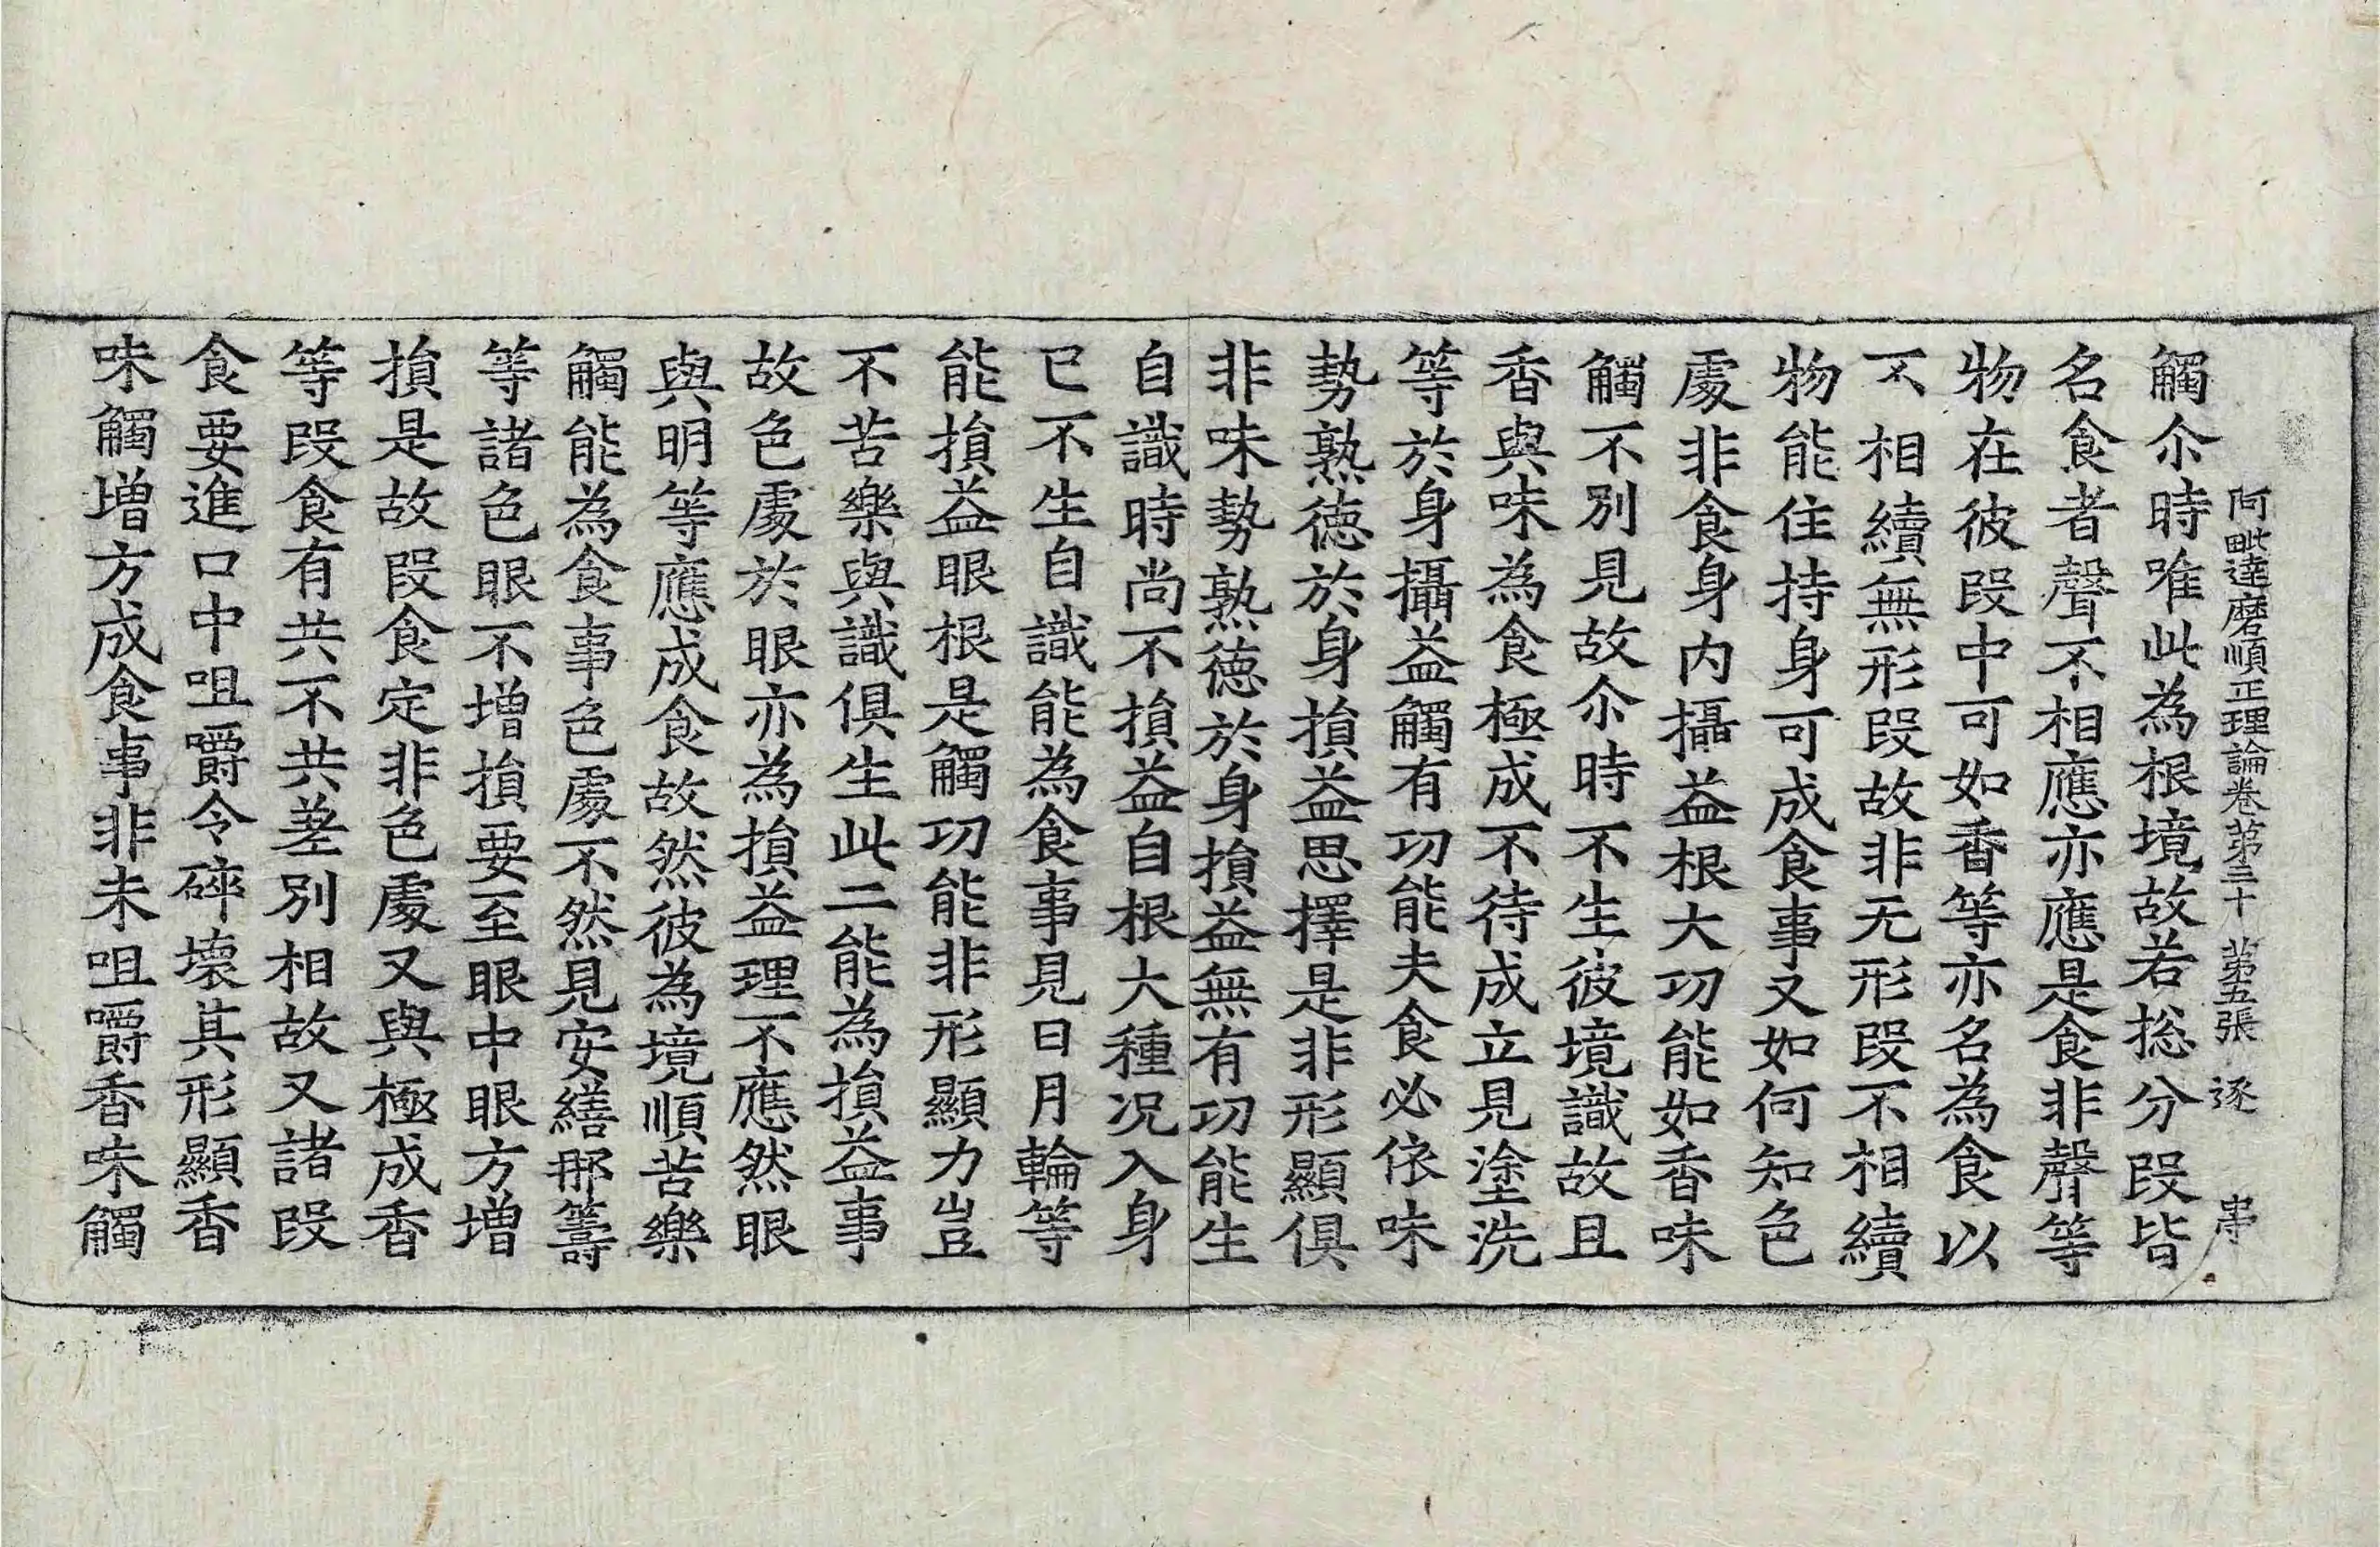 阿毗達磨順正理論卷第三十 第五張 逐
觸尒時唯此為根境故若捴分段皆
名食者聲不相應亦應是食非聲等
物在彼段中可如香等亦名為食以
不相續無形段故非无形段不相續
物能住持身可成食事又如何知色
處非食身內攝益根大功能如香味
觸不別見故尒時不生彼境識故且
香與味為食極成不待成立見塗洗
等於身攝益觸有功能夫食必依味
勢熟德於身損益思擇是非形顯俱
非味勢熟德於身損益無有功能生
自識時尚不損益自根大種况入身
已不生自識能為食事見日月輪等
能損益眼根是觸功能非形顯力豈
不苦樂與識俱生此二能為損益事
故色處於眼亦為損益理不應然眼
與明等應成食故然彼為境順苦樂
觸能為食事色處不然見安繕那籌
等諸色眼不增損要至眼中眼方增
損是故段食定非色處又與極成香
等段食有共不共差別相故又諸段
食要進口中咀嚼令碎壞其形顯香
味觸增方成食事非未咀嚼香味觸